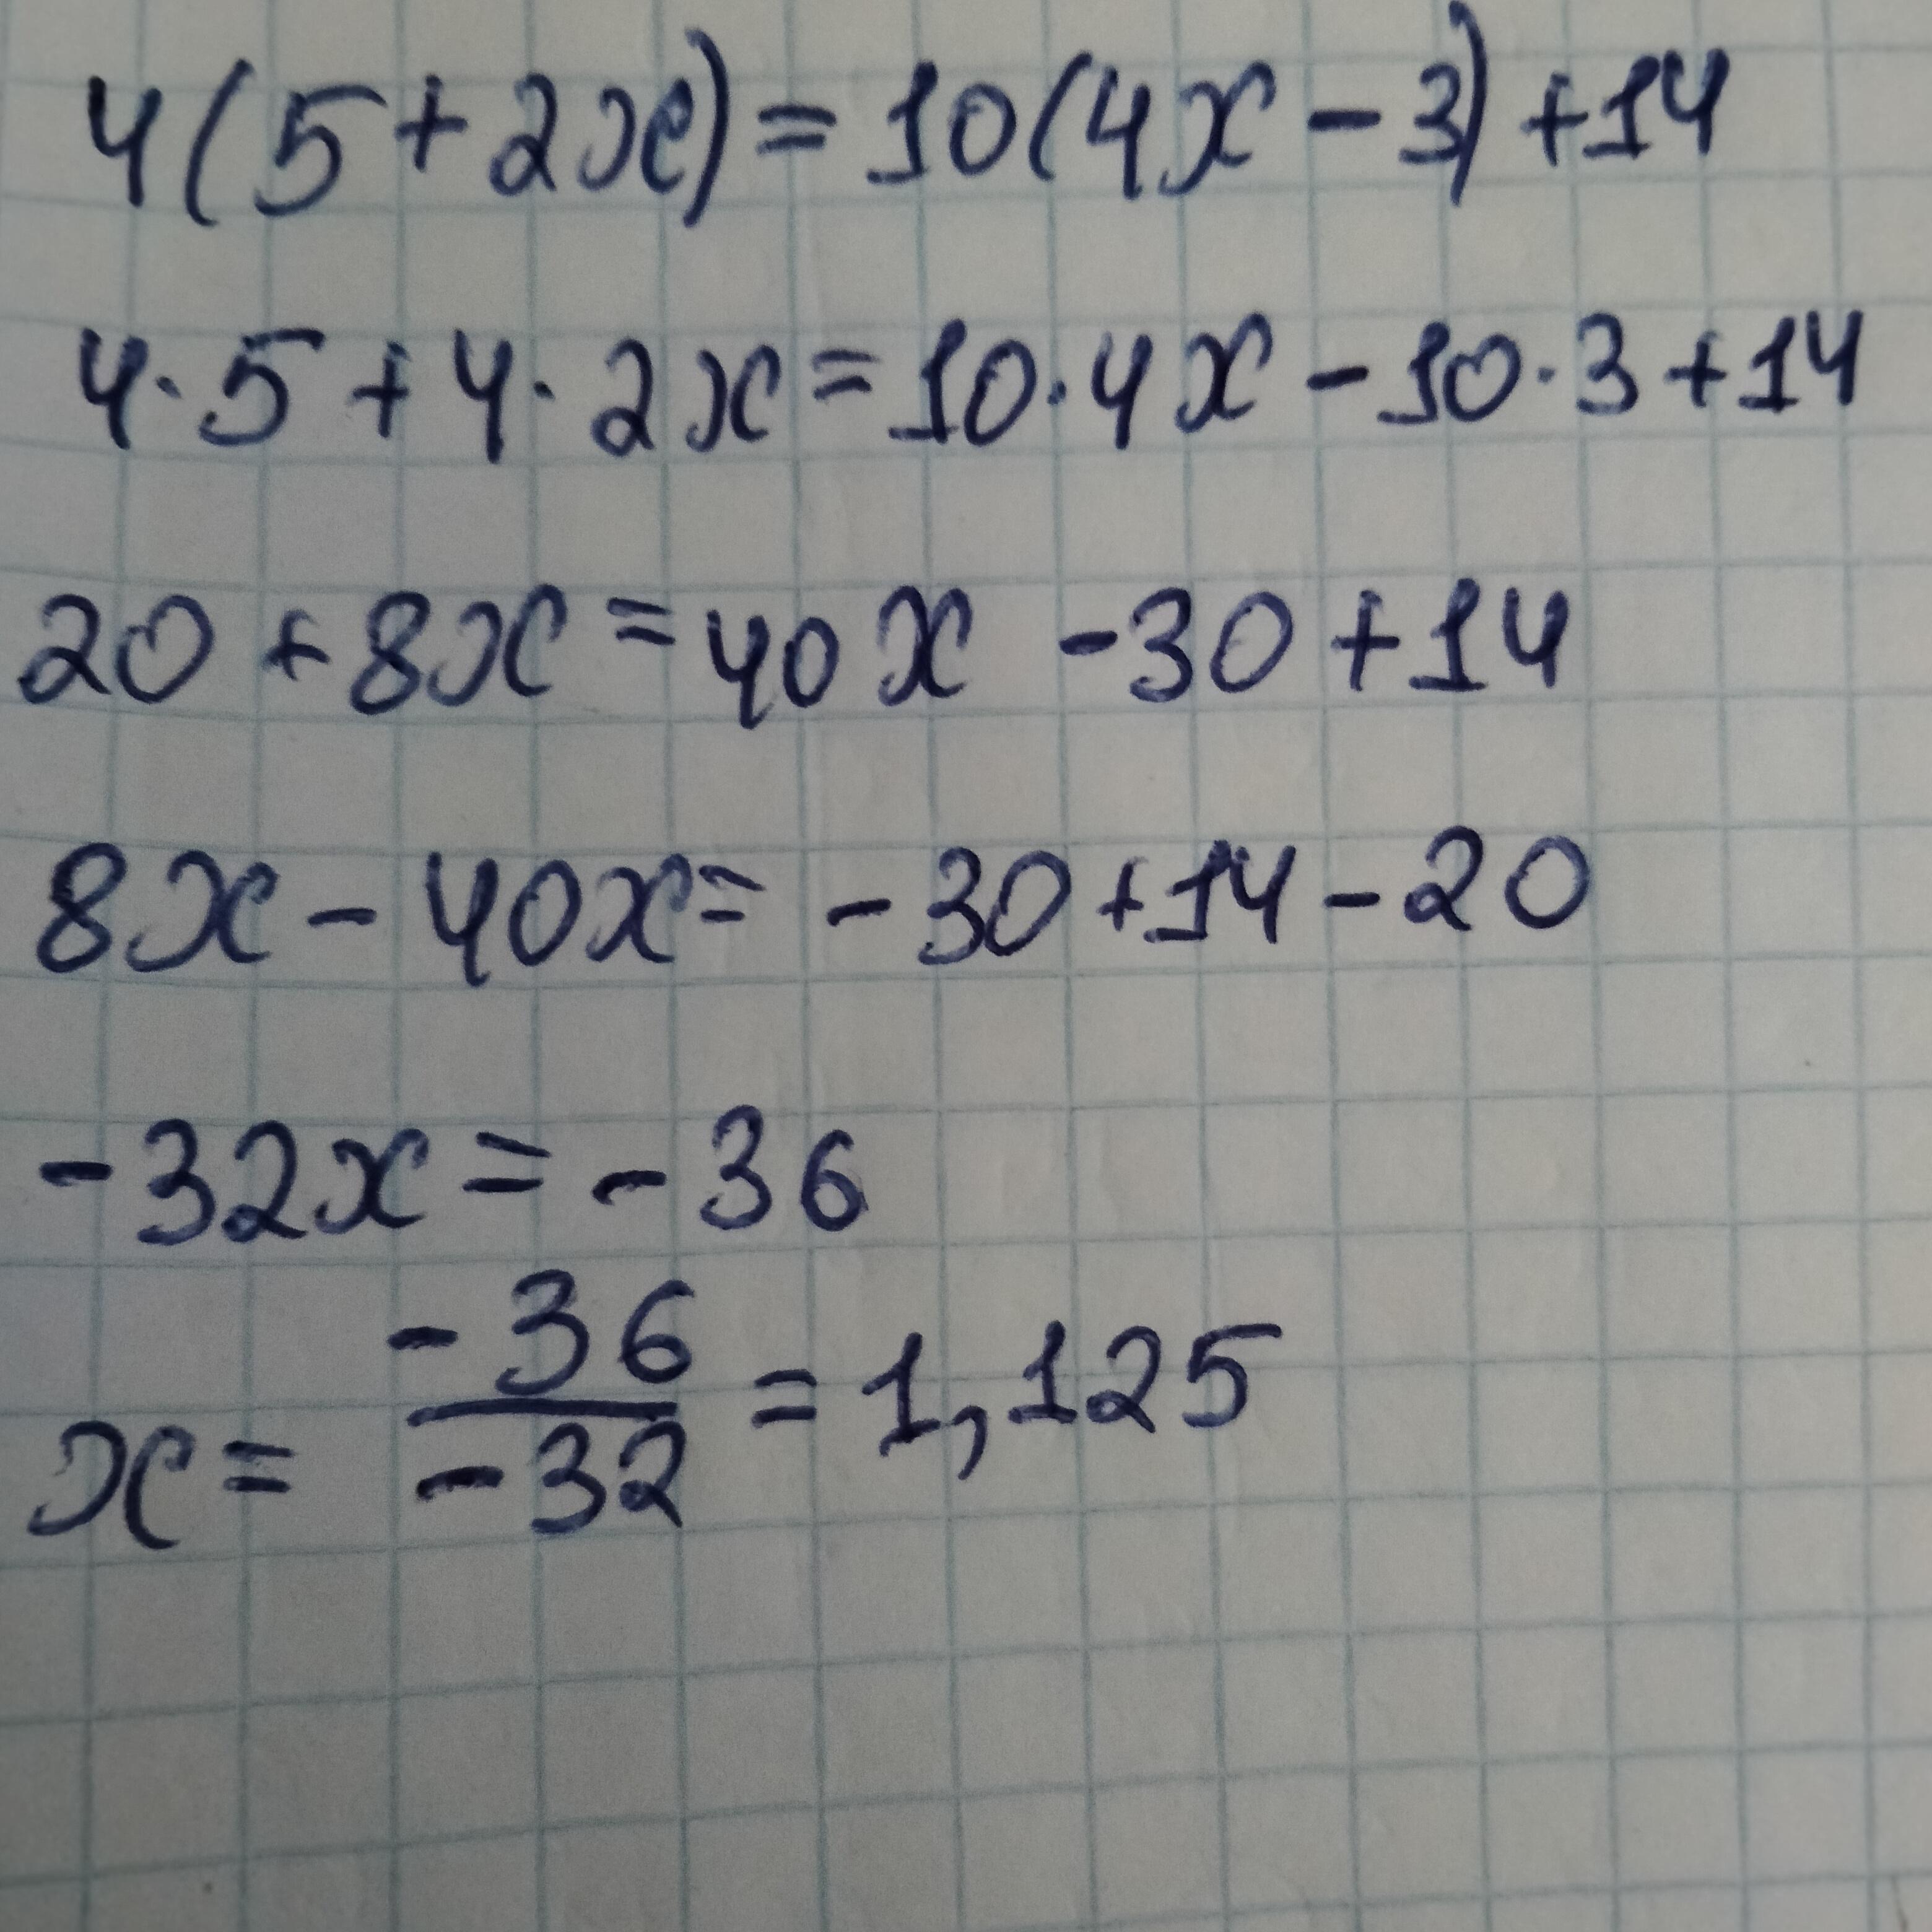 4(5+2x)=10(4x-3)+14
4·5+4·2x=10·4x-10·3+14
20+8x=40x-30+14
8x-40x=-30+14-20
-32x=-36
x=\frac{-36}{-32}=1,125